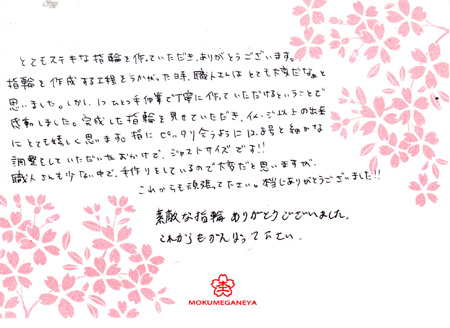 とてもステキな指輪を作っていただき、ありがとうございます。
指輪を作成する工程をうかがった時、職人さんはとても大変だなぁと
思いました。しかし、1つ1つ手作業で丁寧に作っていただけるということで
感動しました。完成した指輪を見せていただき、イメージ以上の出来
にとても嬉しく思います。指にピッタリ合うように12.8号と細かな
調整をしていただいたおかげで、ジャストサイズです!!
職人さんも少ない中で、手作りをしているので大変だと思いますが、
これからも頑張って下さい。本当にありがとうございました!!
素敵な指輪ありがとうございました。
これからもがんばって下さい。
MOKUMEGANEYA